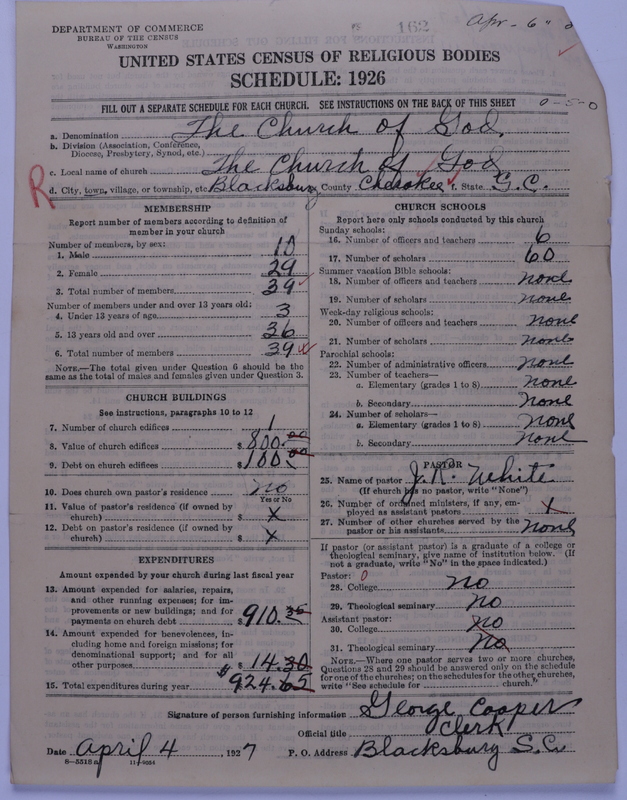 DEPARTMENT OF COMMERCE
BUREAU OF THE CENSUS
WASHINGTON
162
Apr - 6"
UNITED STATES CENSUS OF RELIGIOUS BODIES
SCHEDULE: 1926
FILL OUT A SEPARATE SCHEDULE FOR EACH CHURCH. SEE INSTRUCTIONS ON THE BACK OF THIS SHEET
0-5-0
a. Denomination The Church of God.
b. Division (Association, Conference, Diocese, Presbytery, Synod, etc.)
c. Local name of church The Church of God
R
d. City, town, village, or township, etc. Blacksburg County Cherokee f. State S.C.
MEMBERSHIP
Report number of members according to definition of member in your church
Number of members, by sex:
1. Male 10
2. Female 29
3. Total number of members 39
Number of members under and over 13 years old:
4. Under 13 years of age 3
5. 13 years old and over 36
6. Total number of members 39
NOTE.—The total given under Question 6 should be the same as the total of males and females given under Question 3.
CHURCH BUILDINGS
See instructions, paragraphs 10 to 12
7. Number of church edifices 1
8. Value of church edifices $ 800.00
9. Debt on church edifices $ 100.00
10. Does church own pastor's residence No
Yes or No
11. Value of pastor's residence (if owned by church) $ x
12. Debt on pastor's residence (if owned by church) $ x
EXPENDITURES
Amount expended by your church during last fiscal year
13. Amount expended for salaries, repairs, and other running expenses; for improvements or new buildings; and for payments on church debt $ 910.35
14. Amount expended for benevolences, including home and foreign missions; for denominational support; and for all other purposes $ 14.30
15. Total expenditures during year $ 924.65
CHURCH SCHOOLS
Report here only schools conducted by this church
Sunday schools:
16. Number of officers and teachers 6
17. Number of scholars 60
Summer vacation Bible schools:
18. Number of officers and teachers none
19. Number of scholars none
Week-day religious schools:
20. Number of officers and teachers none
21. Number of scholars none
Parochial schools:
22. Number of administrative officers none
23. Number of teachers—
a. Elementary (grades 1 to 8) none
b. Secondary none
24. Number of scholars—
a. Elementary (grades 1 to 8) none
b. Secondary none
PASTOR
25. Name of pastor J.R. White
(If church has no pastor, write "None")
26. Number of ordained ministers, if any, employed as assistant pastors x
27. Number of other churches served by the pastor or his assistants none
If pastor (or assistant pastor) is a graduate of a college or theological seminary, give name of institution below. (If not a graduate, write "No" in the space indicated.)
Pastor: 0
28. College No
29. Theological seminary No
Assistant pastor:
30. College No
31. Theological seminary No
NOTE.—Where one pastor serves two or more churches, Questions 28 and 29 should be answered only on the schedule for one of the churches; on the schedules for the other churches, write "See schedule for ........ church."
Signature of person furnishing information George Cooper
Official title Clerk
Date April 4, 1927 P. O. Address Blacksburg S.C.
8—5518a 11—9054